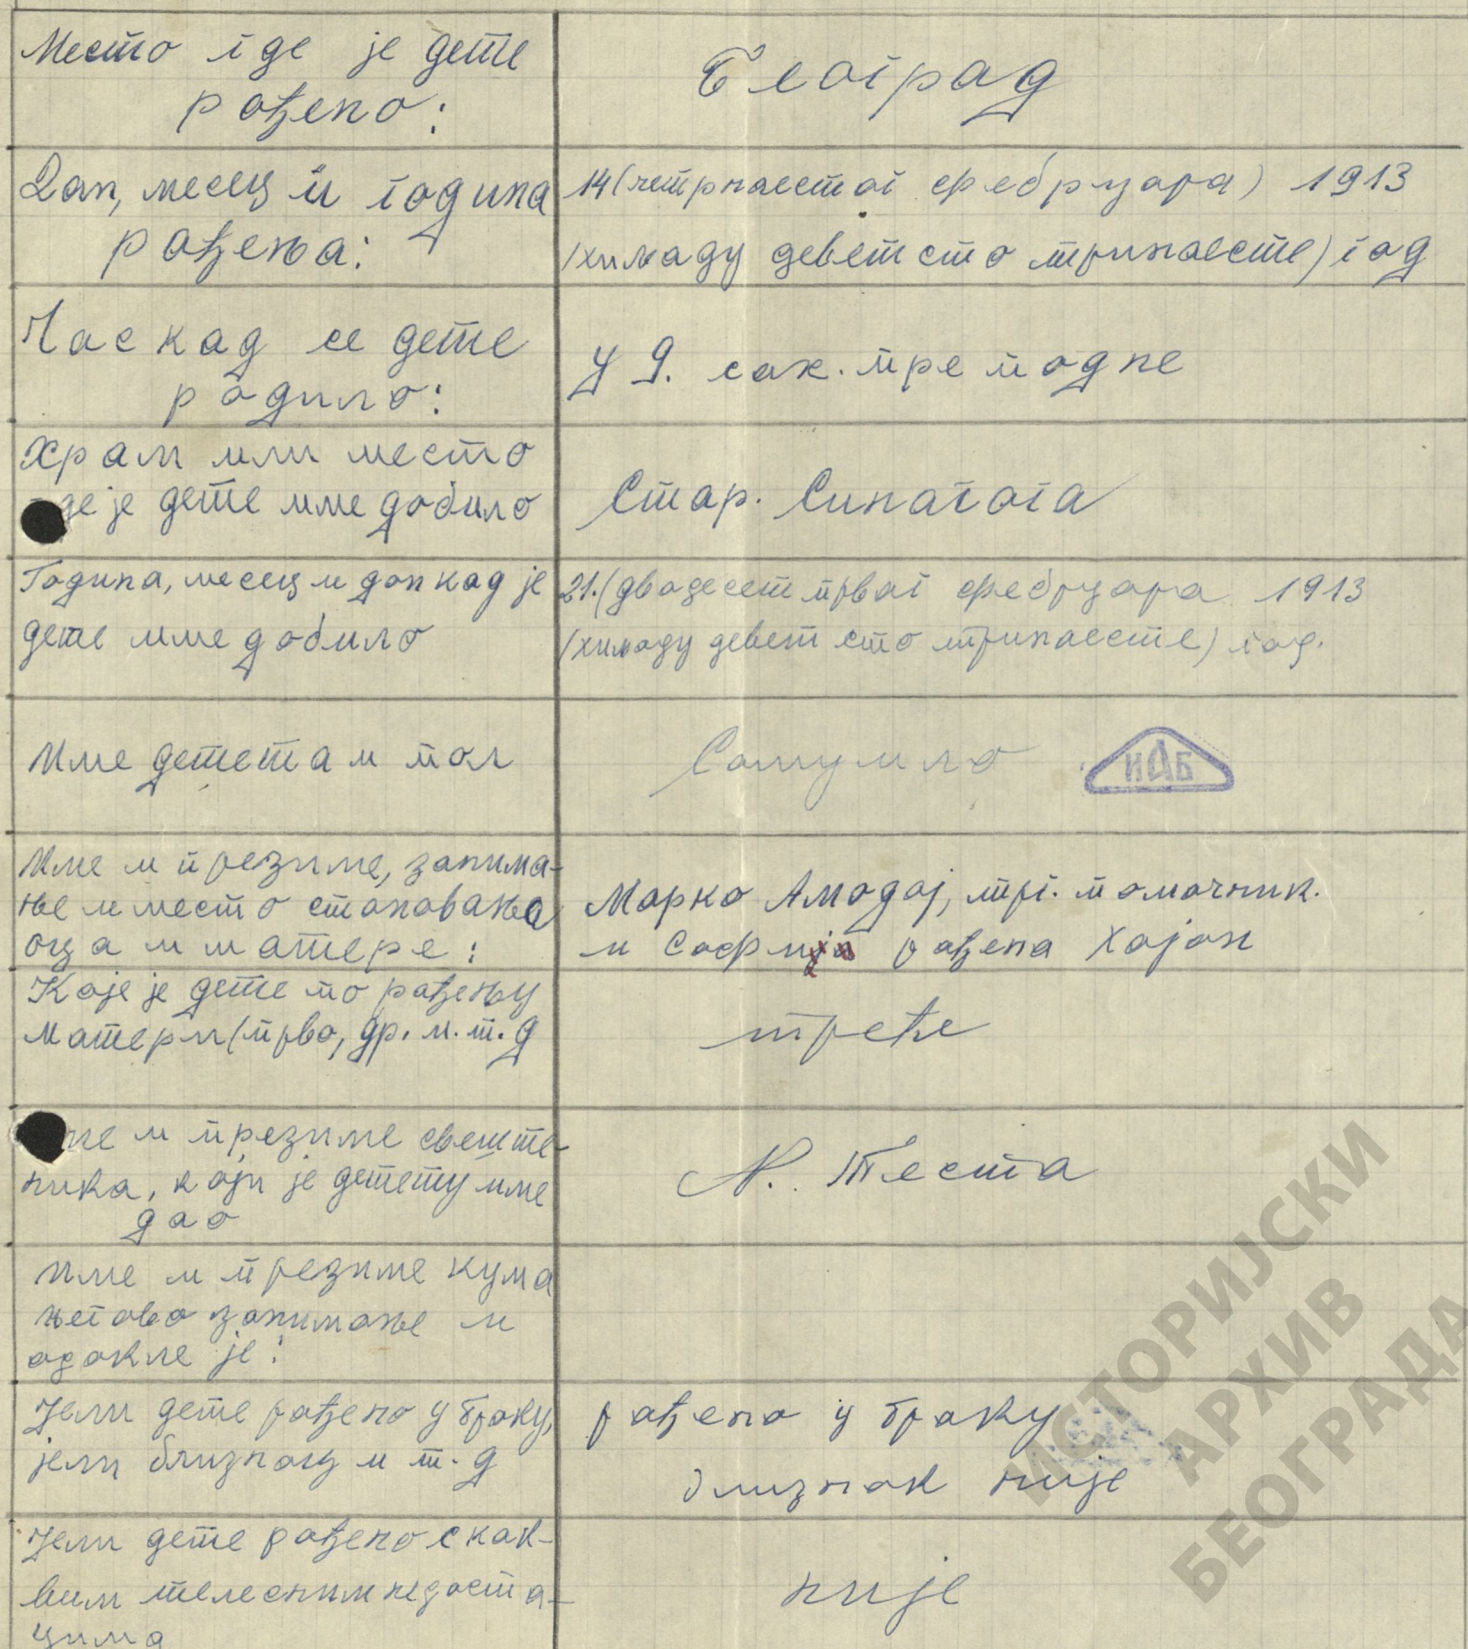 Место где је дете
рођено:
Београд
Дан, месец и година
рођења:
14 (четрнаестог фебруара) 1913
(хиљаду деветсто тринаесте) год
Час кад се дете
родило:
у 9. сах. пре подне
Храм или место
де је дете име добило
Стар. Синагога
Година, месец и дан кад је
дете име добило
21. (двадесет првог фебруара 1913
(хиљаду девет сто тринаесте) год.
Име детета и пол
Самуило
ИАБ
Име и презиме, занима-
ње и место становања
оца и матере:
Марко Амодај, трг. помоћник.
и Софија рођена Хајон
Које је дете по рођењу
матери (прво, др. и. т. д
треће
ме и презиме свеште-
ника, који је детету име
дао
Н. Теста
Име и презиме кума
његово занимање и
одакле је:
Јели дете рођено у браку,
јели близнац и т. д
рођено у браку
близнак није
Јели дете рођено с как-
вим телесним недоста-
цима
није
ИСТОРИЈСКИ
АРХИВ
БЕОГРАДА